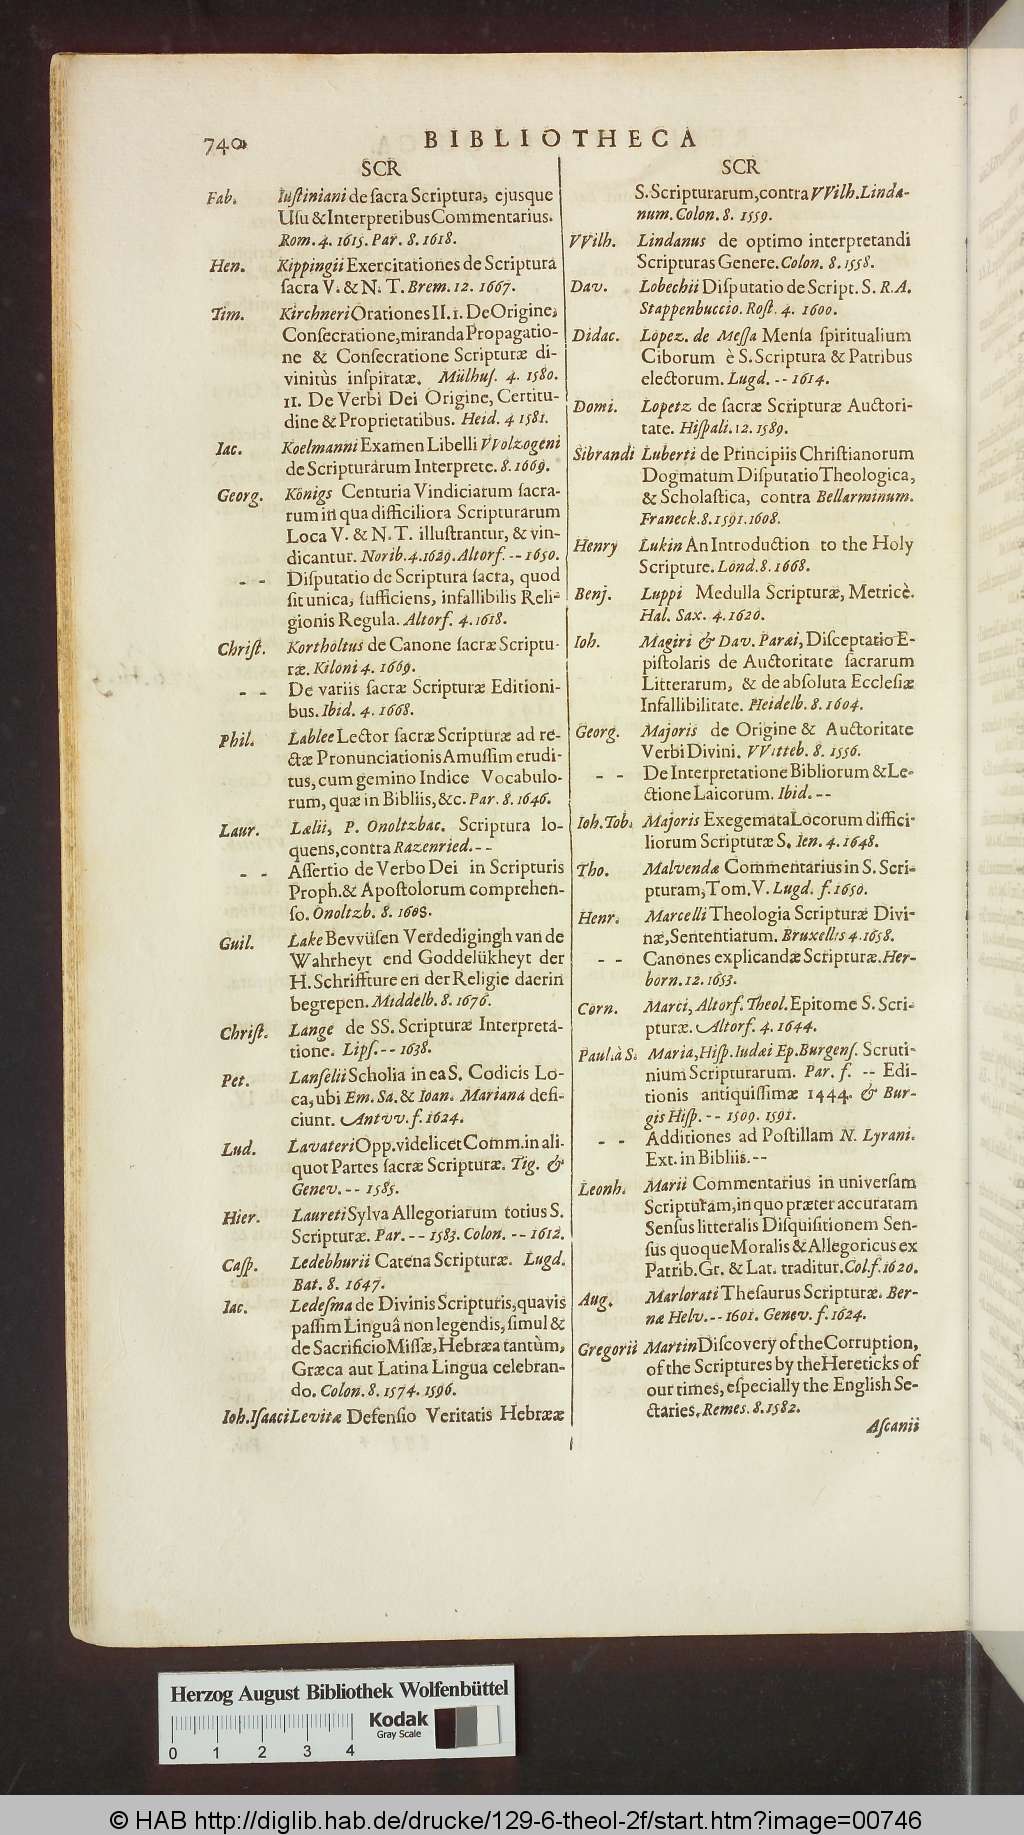 740 BIBLIOTHECA
SCR
Fab. Iuſtiniani de ſacra Scriptura, ejusque
Uſu & Interpretibus Commentarius.
Rom. 4. 1615. Par. 8. 1618.
Hen. Kippingii Exercitationes de Scriptura
ſacra V. & N. T. Brem. 12. 1667.
Tim. Kirchneri Orationes II. 1. De Origine,
Conſecratione, miranda Propagatio-
ne & Conſecratione Scripturæ di-
vinitùs inſpiratæ. Mülhuſ. 4. 1580.
11. De Verbi Dei Origine, Certitu-
dine & Proprietatibus. Heid. 4 1581.
Iac. Koelmanni Examen Libelli VVolzogeni
de Scripturarum Interprete. 8. 1669.
Georg. Königs Centuria Vindiciarum ſacra-
rum in qua difficiliora Scripturarum
Loca V. & N. T. illuſtrantur, & vin-
dicantur. Norib. 4. 1629. Altorf. -- 1650.
- - Diſputatio de Scriptura ſacra, quod
ſit unica, ſufficiens, infallibilis Reli-
gionis Regula. Altorf. 4. 1618.
Chriſt. Kortholtus de Canone ſacræ Scriptu-
ræ. Kiloni 4. 1669.
- - De variis ſacræ Scripturæ Editioni-
bus. Ibid. 4. 1668.
Phil. Lablee Lector ſacræ Scripturæ ad re-
ctæ Pronunciationis Amuſſim erudi-
tus, cum gemino Indice Vocabulo-
rum, quæ in Bibliis, &c. Par. 8. 1646.
Laur. Lælii, P. Onoltzbac. Scriptura lo-
quens, contra Razenried. --
- - Aſſertio de Verbo Dei in Scripturis
Proph. & Apoſtolorum comprehen-
ſo. Onoltzb. 8. 1608.
Guil. Lake Bevvüſen Verdedigingh van de
Wahrheyt end Goddelükheyt der
H. Schriffture en der Religie daerin
begrepen. Middelb. 8. 1676.
Chriſt. Lange de SS. Scripturæ Interpreta-
tione. Lipſ. -- 1638.
Pet. Lanſelii Scholia in ea S. Codicis Lo-
ca, ubi Em. Sa. & Ioan. Mariana defi-
ciunt. Antvv. f. 1624.
Lud. Lavateri Opp. videlicet Comm. in ali-
quot Partes ſacræ Scripturæ. Tig. &
Genev. -- 1585.
Hier. Laureti Sylva Allegoriarum totius S.
Scripturæ. Par. -- 1583. Colon. -- 1612.
Caſp. Ledebhurii Catena Scripturæ. Lugd.
Bat. 8. 1647.
Iac. Ledeſma de Divinis Scripturis, quavis
paſſim Linguâ non legendis, ſimul &
de Sacrificio Miſſæ, Hebræa tantùm,
Græca aut Latina Lingua celebran-
do. Colon. 8. 1574. 1596.
Ioh. Iſaaci Levitæ Defenſio Veritatis Hebrææ
SCR
S. Scripturarum, contra VVilh. Linda-
num. Colon. 8. 1559.
VVilh. Lindanus de optimo interpretandi
Scripturas Genere. Colon. 8. 1558.
Dav. Lobechii Diſputatio de Script. S. R. A.
Stappenbuccio. Roſt. 4. 1600.
Didac. Lopez. de Meſſa Menſa ſpiritualium
Ciborum è S. Scriptura & Patribus
electorum. Lugd. -- 1614.
Domi. Lopetz de ſacræ Scripturæ Auctori-
tate. Hiſpali. 12. 1589.
Sibrandi Luberti de Principiis Chriſtianorum
Dogmatum Diſputatio Theologica,
& Scholaſtica, contra Bellarminum.
Franeck. 8. 1591. 1608.
Henry Lukin An Introduction to the Holy
Scripture. Lond. 8. 1668.
Benj. Luppi Medulla Scripturæ, Metricè.
Hal. Sax. 4. 1620.
Ioh. Magiri & Dav. Paræi, Diſceptatio E-
piſtolaris de Auctoritate ſacrarum
Litterarum, & de abſoluta Eccleſiæ
Infallibilitate. Heidelb. 8. 1604.
Georg. Majoris de Origine & Auctoritate
Verbi Divini. VVitteb. 8. 1556.
- - De Interpretatione Bibliorum & Le-
ctione Laicorum. Ibid. --
Ioh. Tob. Majoris Exegemata Locorum diffici-
liorum Scripturæ S. Ien. 4. 1648.
Tho. Malvendæ Commentarius in S. Scri-
pturam, Tom. V. Lugd. f. 1650.
Henr. Marcelli Theologia Scripturæ Divi-
næ, Sententiarum. Bruxellis 4. 1658.
- - Canones explicandæ Scripturæ. Her-
born. 12. 1653.
Corn. Marci, Altorf. Theol. Epitome S. Scri-
pturæ. Altorf. 4. 1644.
Paul. à S. Maria, Hiſp. Iudæi Ep. Burgenſ. Scruti-
nium Scripturarum. Par. f. -- Edi-
tionis antiquiſſimæ 1444. & Bur-
gis Hiſp. -- 1509. 1591.
- - Additiones ad Poſtillam N. Lyrani.
Ext. in Bibliis. --
Leonh. Marii Commentarius in univerſam
Scripturam, in quo præter accuratam
Senſus litteralis Diſquiſitionem Sen-
ſus quoque Moralis & Allegoricus ex
Patrib. Gr. & Lat. traditur. Col. f. 1620.
Aug. Marlorati Theſaurus Scripturæ. Ber-
næ Helv. -- 1601. Genev. f. 1624.
Gregorii Martin Diſcovery of the Corruption,
of the Scriptures by the Hereticks of
our times, eſpecially the English Se-
ctaries. Remes. 8. 1582.
Aſcanii
Herzog August Bibliothek Wolfenbüttel
Kodak
Gray Scale
0 1 2 3 4
© HAB http://diglib.hab.de/drucke/129-6-theol-2f/start.htm?image=00746